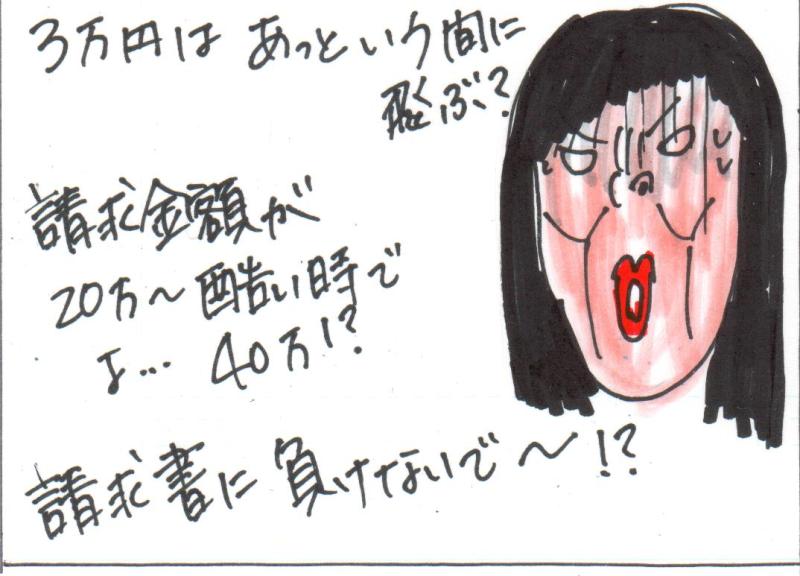 3万円は あっという間に
飛ぶ？
請求金額が
20万〜酷い時で
よ… 40万!?
請求書に負けないで〜!?